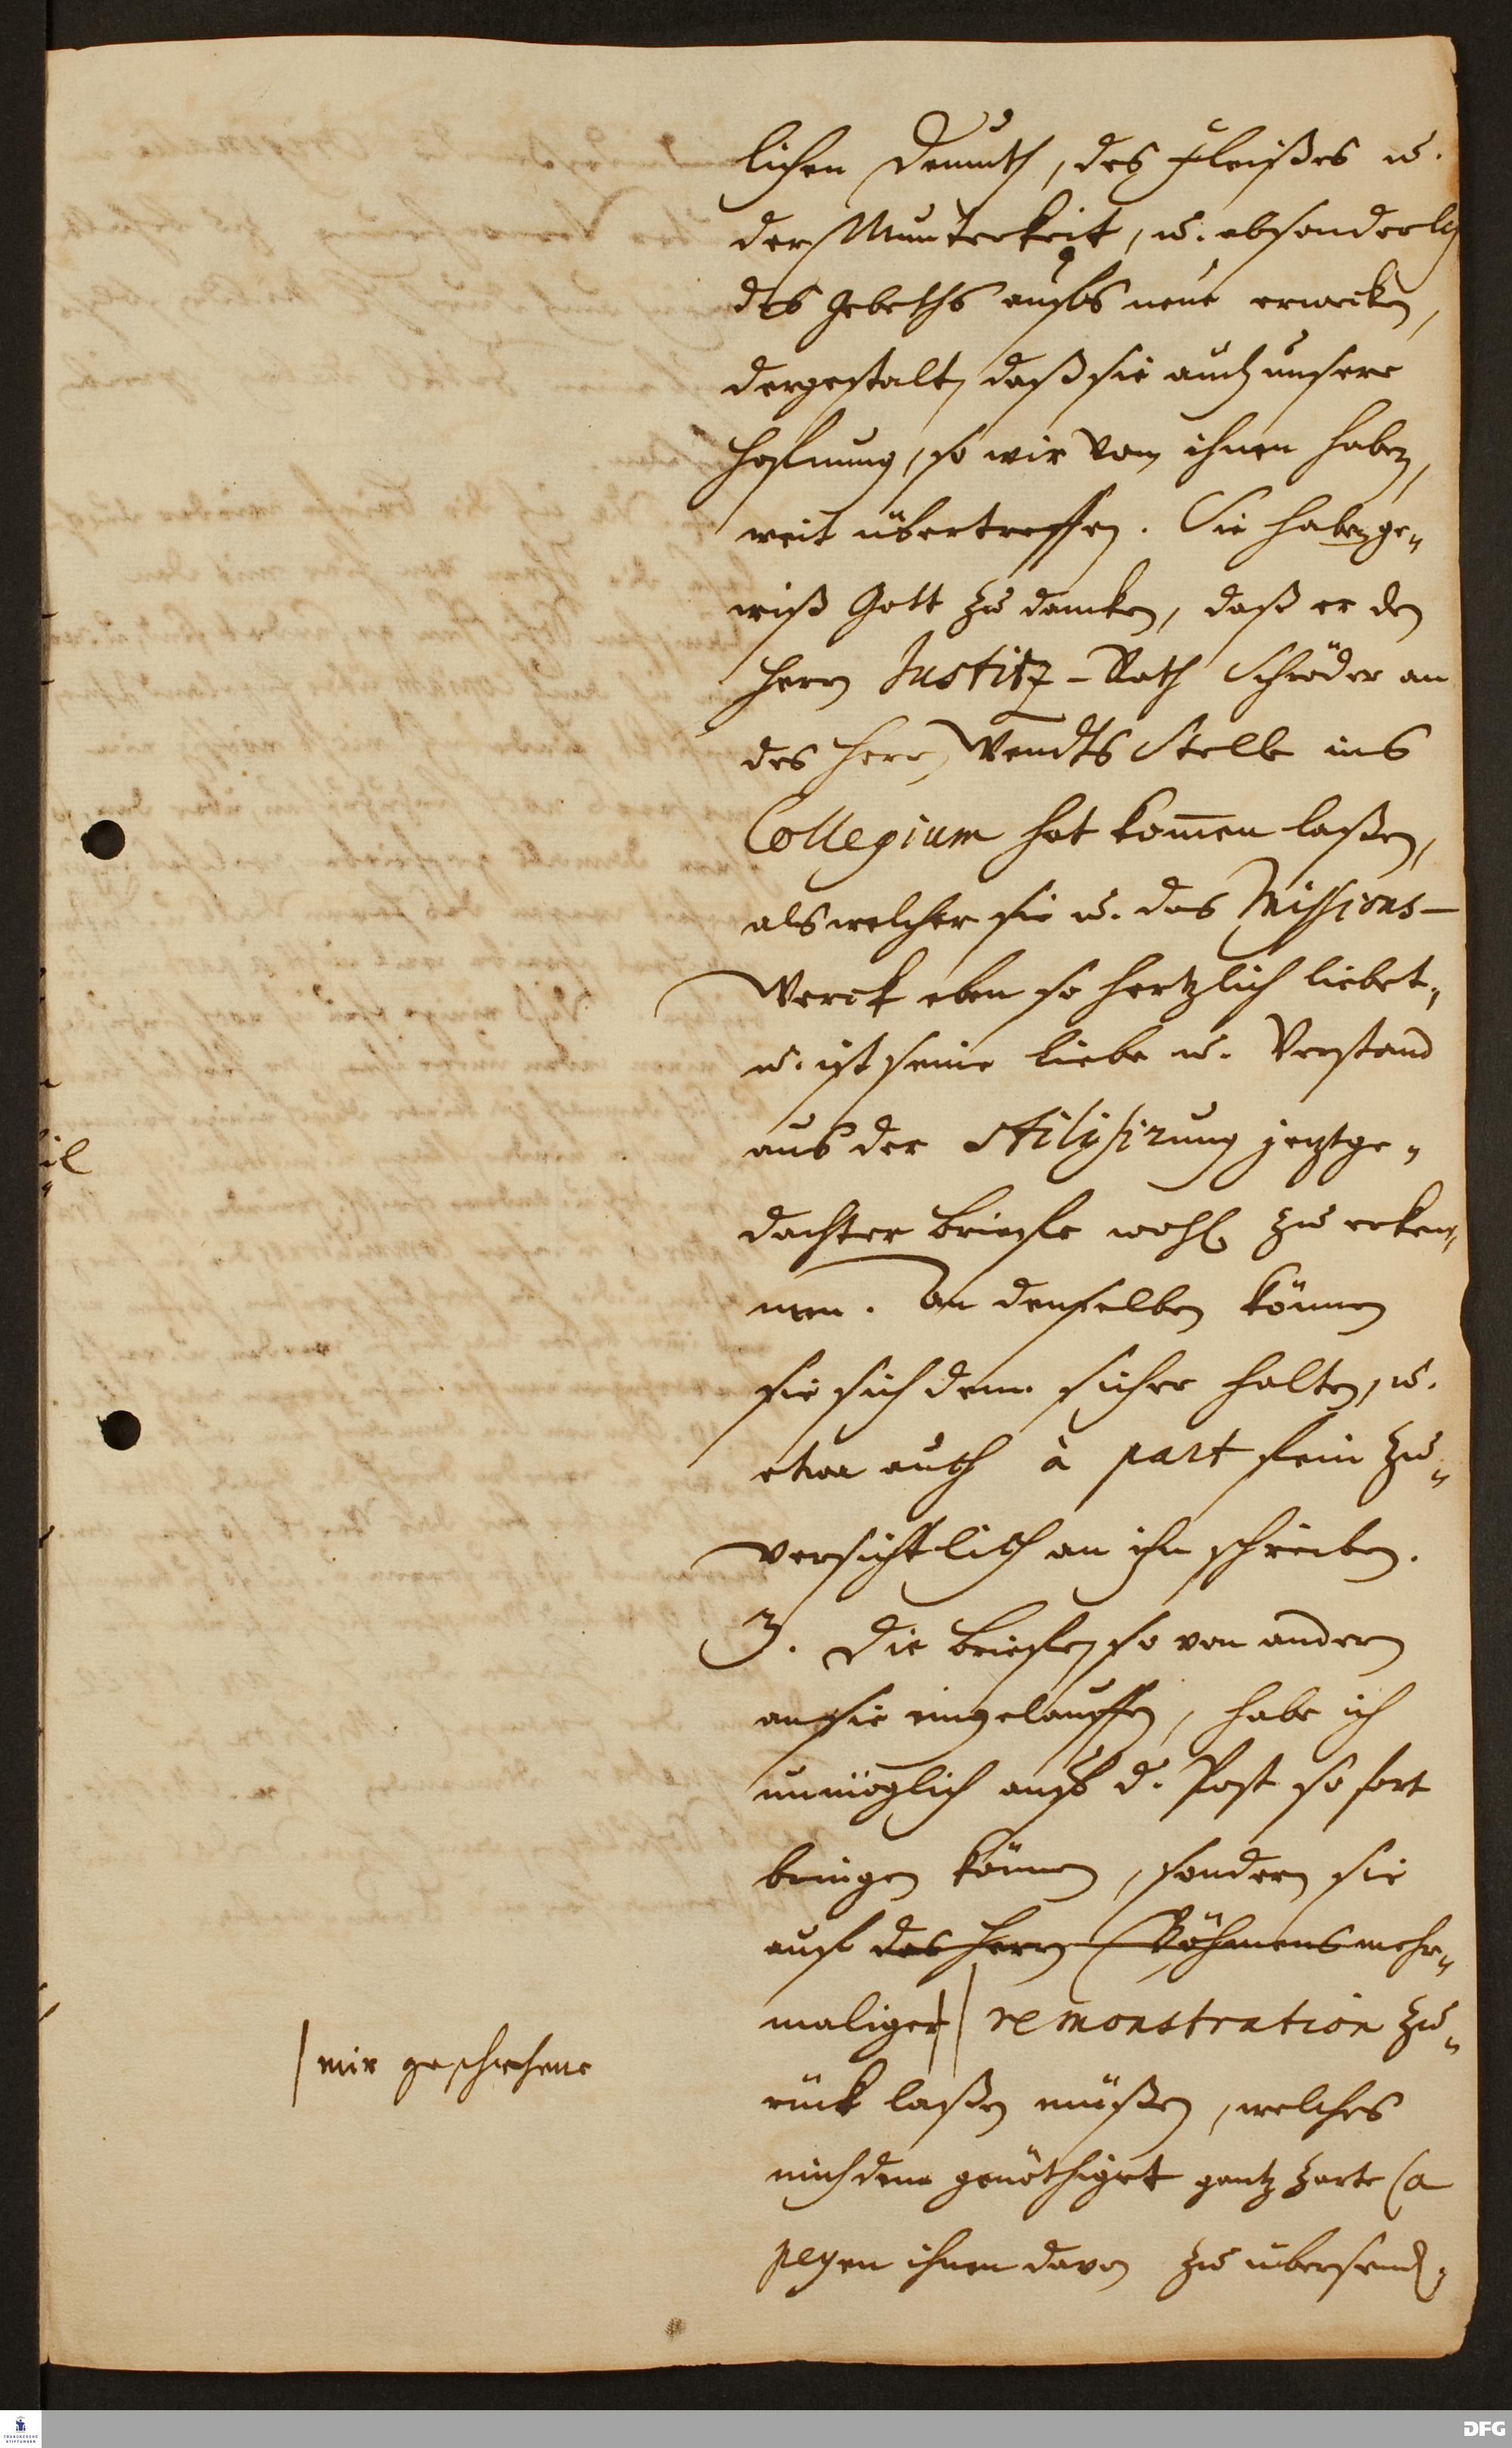 lichen Demuth, des Fleißes u.
der Munterkeit, u. absonderlich
des Gebeths auffs neue erwecken,
dergestalt, daß sie auch unsere
Hofnung, so wir von ihnen haben,
weit übertreffen. Sie haben ge„
wiß Gott zu dancken, daß er den
Herrn Justitz-Rath Schröder an
des Herrn Wendts Stelle ins
Collegium hat kom̄en laßen,
als welcher sie u. das Missions-
Werck eben so hertzlich liebet,
u. ist seine Liebe u. Verstand
aus der Stilisirung jetztge„
dachter Brieffe wohl zu erken„
nen. An denselben können
sie sich denn sicher halten, u.
etwa auch à part fein zu„
versichtlich an ihn schreiben.
3. Die Brieffe, so von andern
an sie eingelauffen, habe ich
unmöglich auff d. Post so fort
bringen können, sondern sie
auf des Herrn Böhmens mehr„
maliger remonstration zu„
|mir geschehene
rück laßen müßen, welches
mich denn genöthiget gantz zarte Ca
peyen ihnen davon zu übersend.